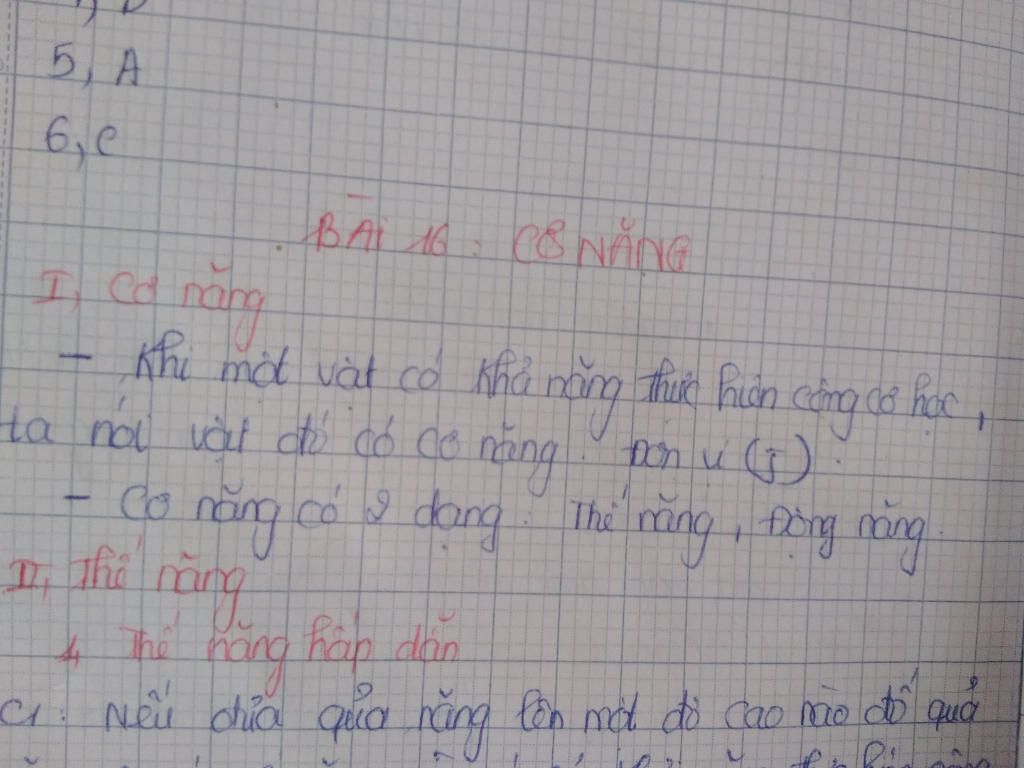 5, A
6, C
BÀI 16: CƠ NĂNG
I, Cơ năng
- Khi một vật có khả năng thực hiện công cơ học,
ta nói vật đó có cơ năng. Đơn vị (J).
- Cơ năng có 2 dạng: Thế năng, Động năng.
II, Thế năng
1, Thế năng hấp dẫn
C1: Nếu đưa quả nặng lên một độ cao nào đó quả